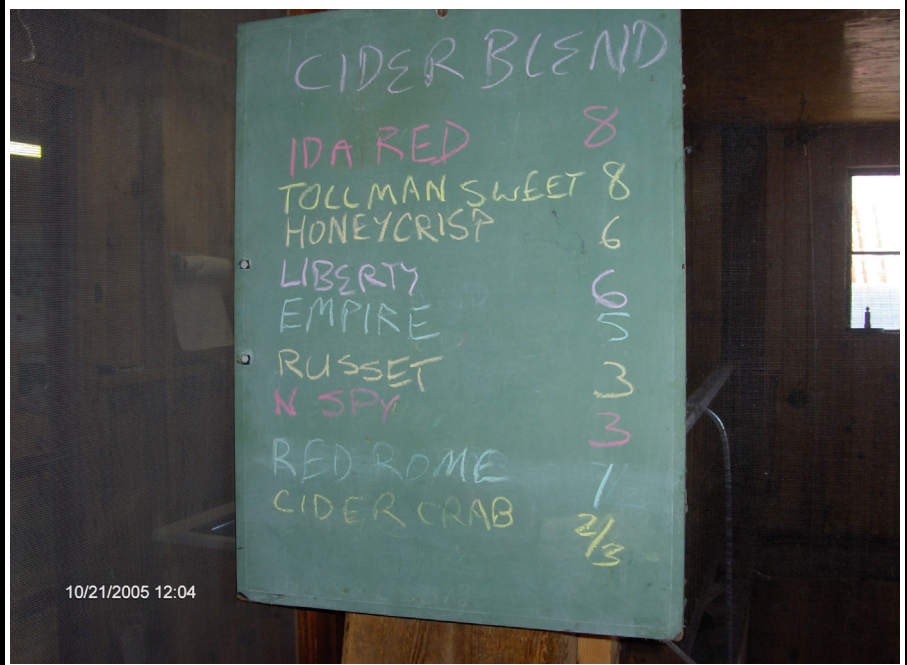 CIDER BLEND
IDA RED 8
TOLLMAN SWEET 8
HONEYCRISP 6
LIBERTY 6
EMPIRE 5
RUSSET 3
N SPY 3
RED ROME 1
CIDER CRAB 2/3
10/21/2005 12:04